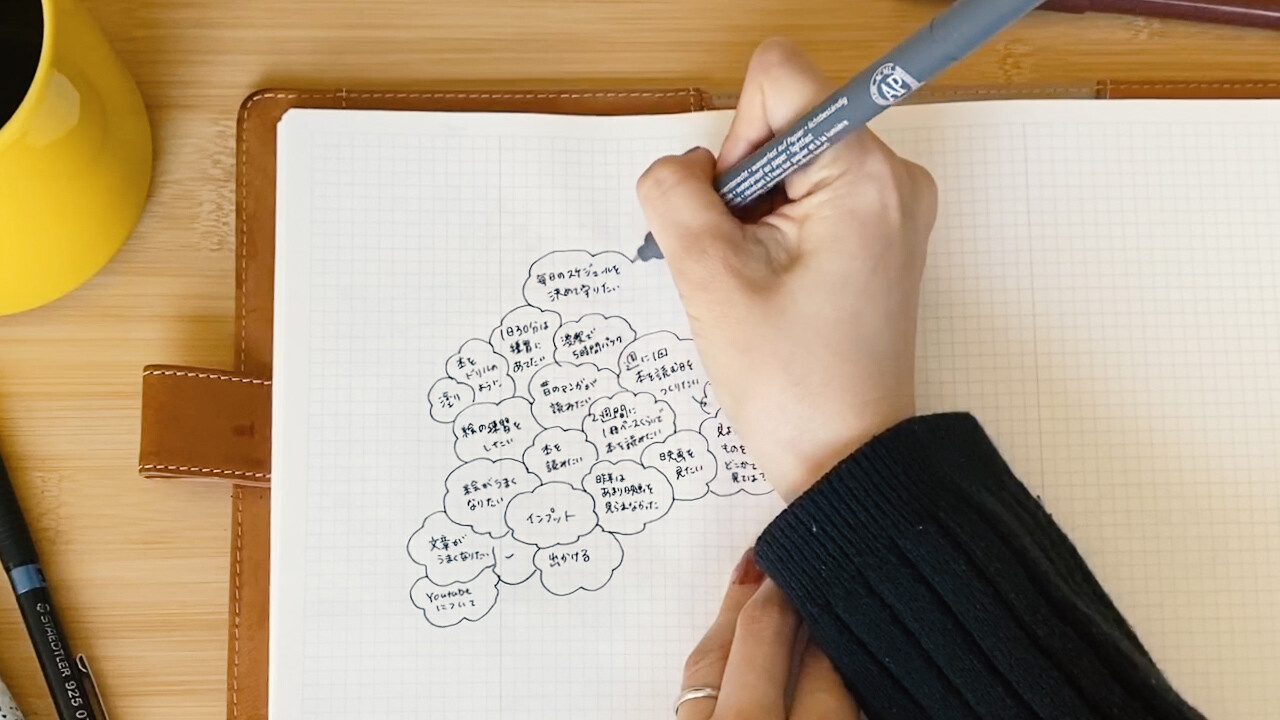 毎日のスケジュールを
決めて守りたい
1日30分は
練習に
あてたい
漫喫で
5時間パック
本を
ドリルの
ように
塗り
昔のマンガが
読みたい
週に1回
本を読む日を
つくりたい
2週間に
1冊ペースくらいで
本を読めたい
絵の練習を
したい
本を
読みたい
映画を
見たい
見よ
ものを
どこかで
見ては?
絵がうまく
なりたい
昨年は
あまり映画を
見られなかった
インプット
文章が
うまくなりたい
出かける
Youtube
について
AP
wasserfest auf Papier • lichtbeständig
waterproof on paper • lightfast
résistant à l'eau sur papier et à la lumière
STAEDTLER 925